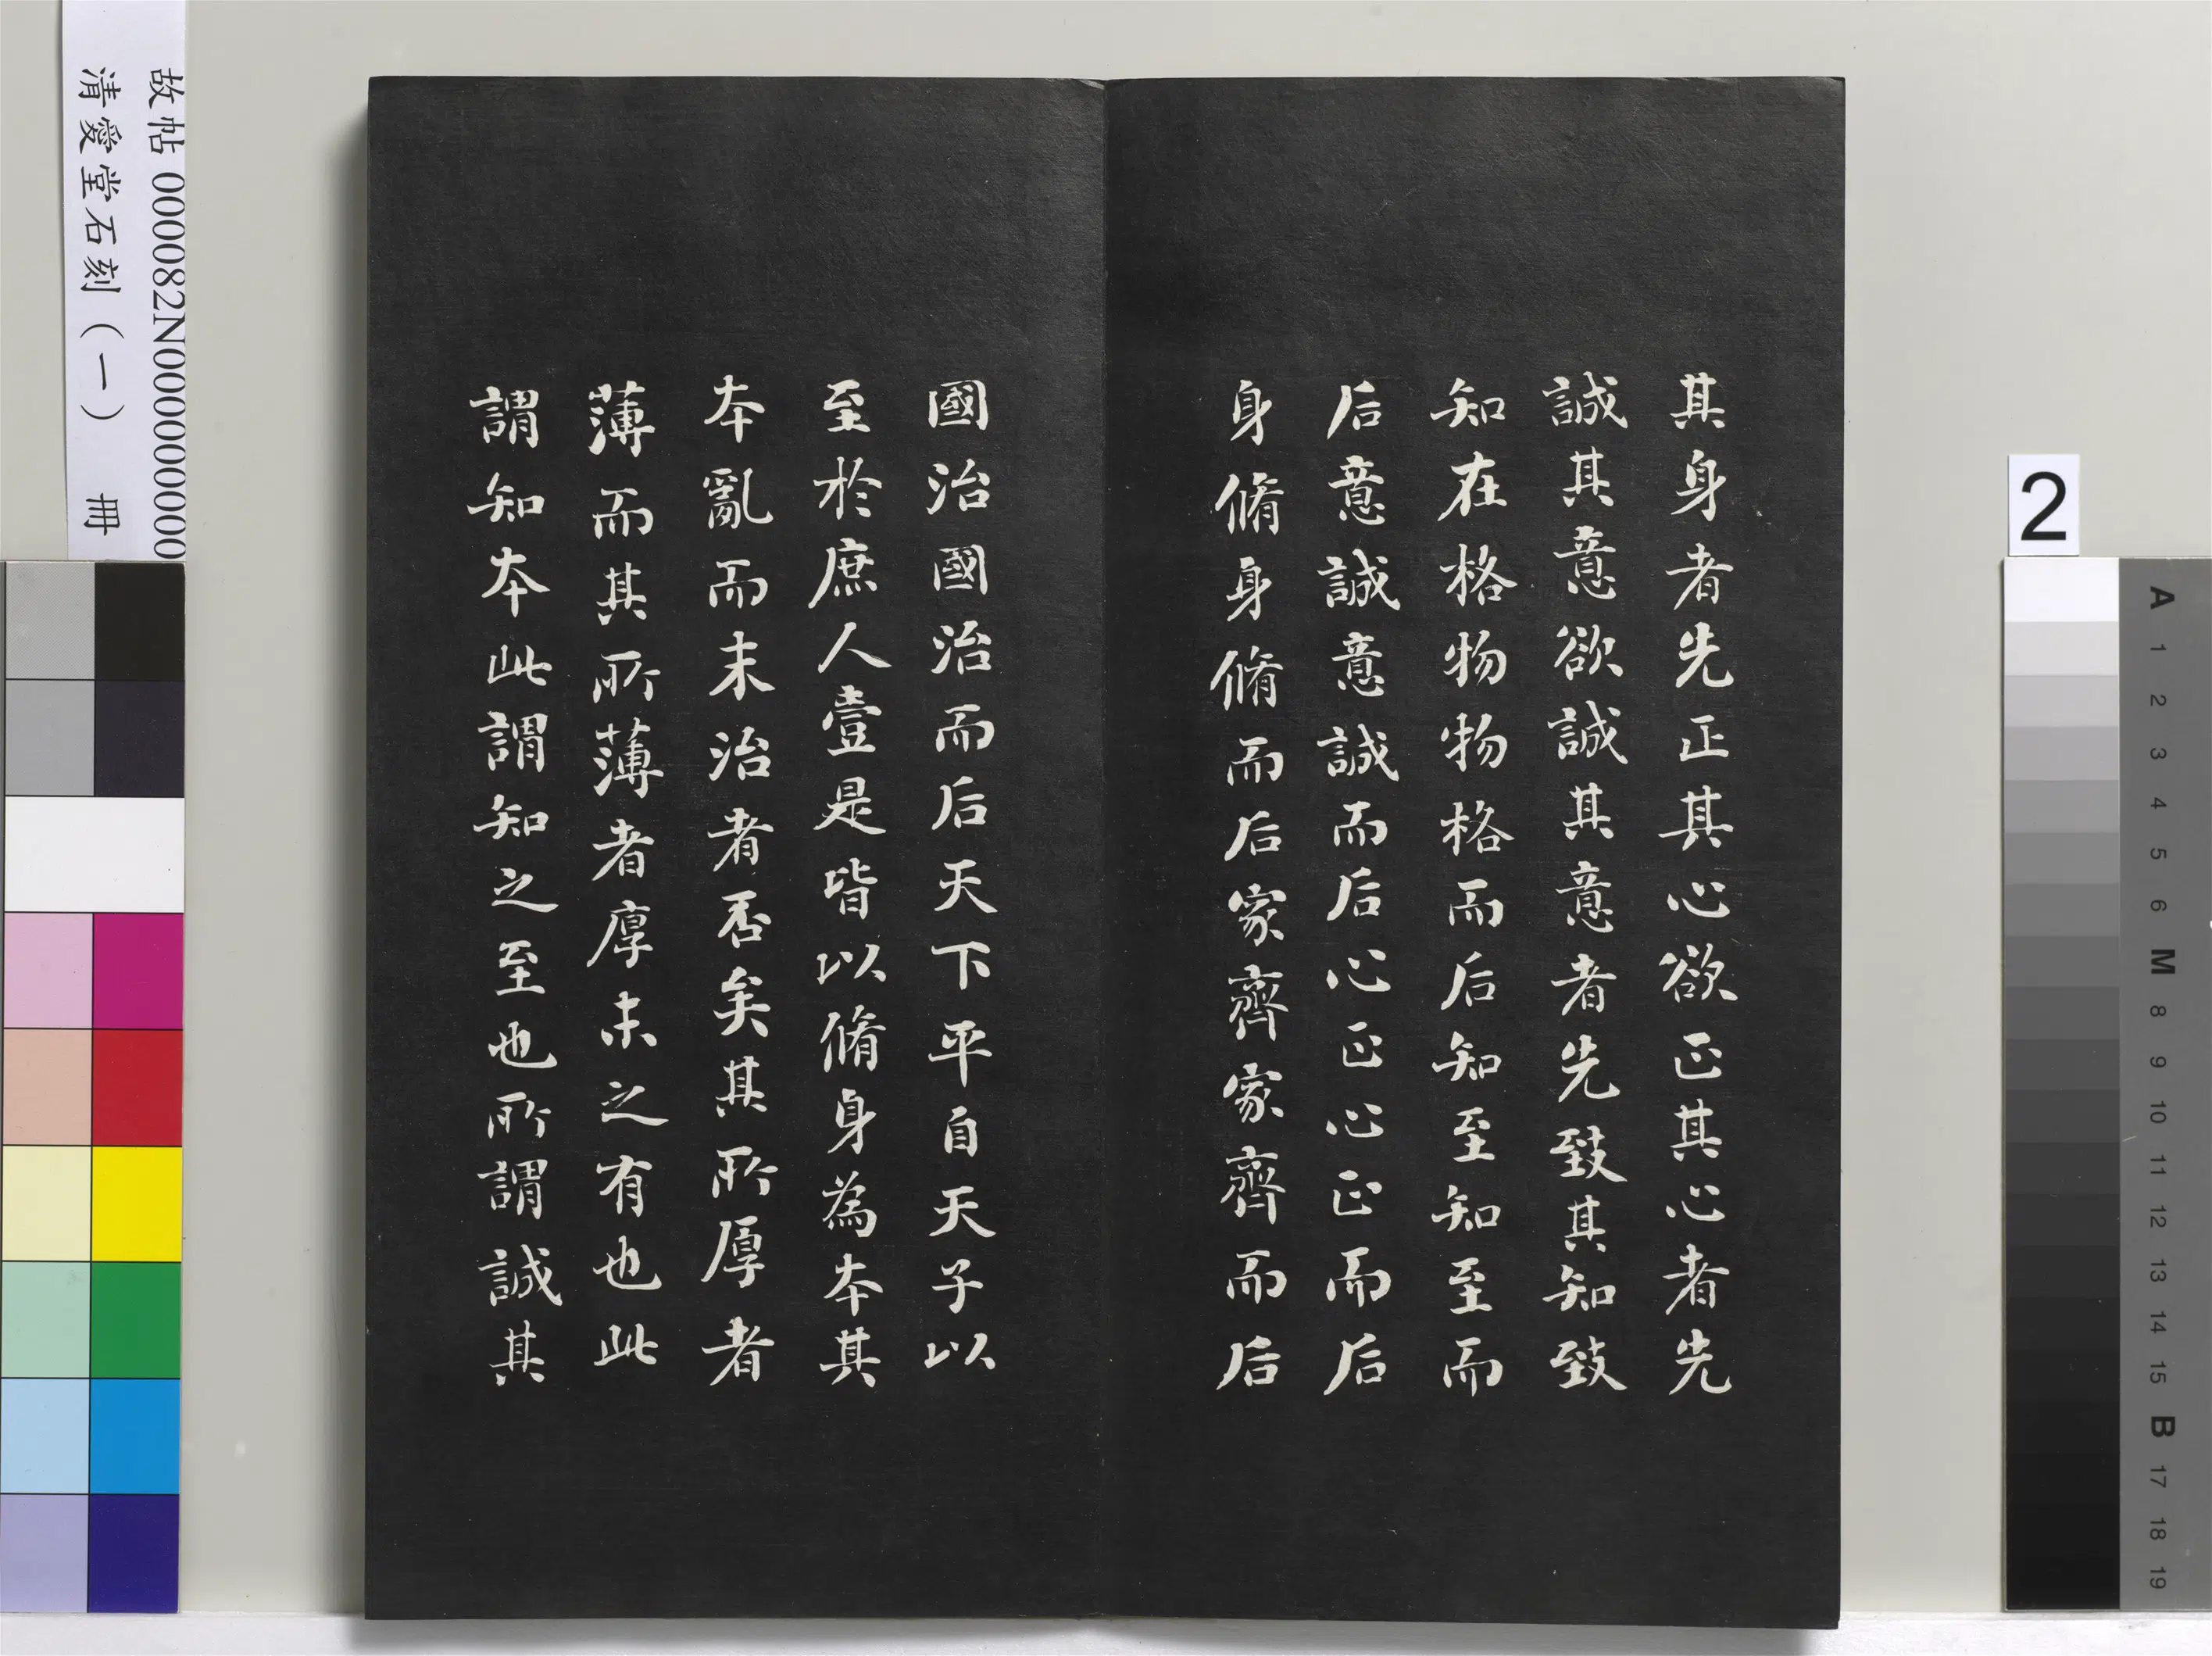 其身者先正其心欲正其心者先
誠其意欲誠其意者先致其知致
知在格物物格而后知至知至而
后意誠意誠而后心正心正而后
身脩身脩而后家齊家齊而后
國治國治而后天下平自天子以
至於庶人壹是皆以脩身為本其
本亂而末治者否矣其所厚者
薄而其所薄者厚未之有也此
謂知本此謂知之至也所謂誠其
故帖 000082N000000000
清愛堂石刻（一） 冊
2
A
1
2
3
4
5
6
M
8
9
10
11
12
13
14
15
B
17
18
19